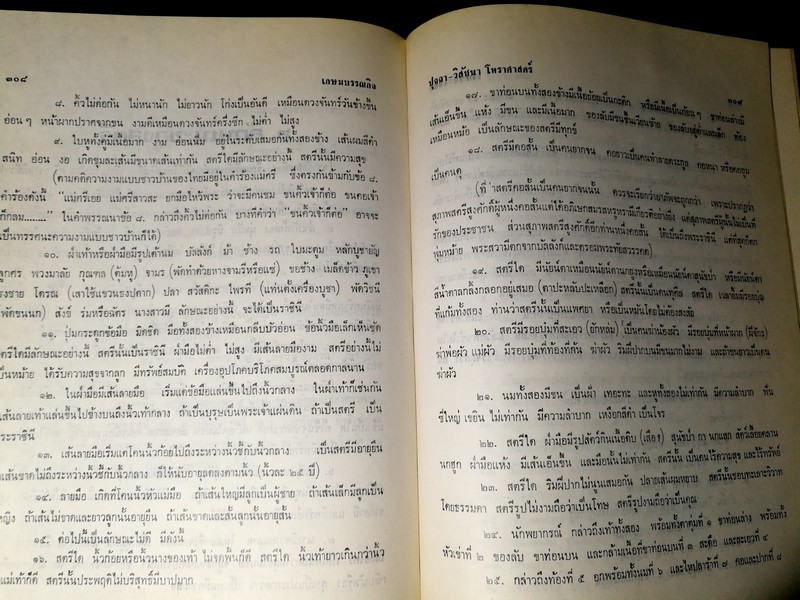 ๓๐๘ เกษมบรรณกิจ
๘. คิ้วไม่ต่อกัน ไม่หนานัก ไม่ยาวนัก โก่งเป็นอันดี เหมือนดวงจันทร์วันข้างขึ้น
อ่อน ๆ หน้าผากปราศจากขน งามดีเหมือนดวงจันทร์ครึ่งซีก ไม่ต่ำ ไม่สูง
๙. ใบหูทั้งคู่มีเนื้อมาก งาม อ่อนนิ่ม อยู่ในระดับเสมอกันทั้งสองข้าง เส้นผมสีดำ
สนิท อ่อน งอ เกิดขุมละเส้นมีขนาดเส้นเท่ากัน สตรีใดมีลักษณะอย่างนี้ สตรีนั้นมีความสุข
(ตามคติความงามแบบชาวบ้านของไทยมีอยู่ในคำร้องแม่ศรี ซึ่งตรงกันข้ามกับข้อ ๘.
คำร้องดังนี้ "แม่ศรีเอย แม่ศรีสาวสะ ยกมือไหว้พระ ว่าจะมีคนชม ขนคิ้วเจ้าก็ต่อ ขนคอเจ้า
ก็กลม........" ในคำพรรณนาข้อ ๘. กล่าวถึงคิ้วไม่ต่อกัน บางทีคำว่า "ขนคิ้วเจ้าก็ต่อ" อาจจะ
เป็นทรรศนะความงามแบบชาวบ้านก็ได้)
๑๐. ฝ่าเท้าหรือฝ่ามือมีรูปเต้านม บัลลังก์ ม้า ช้าง รถ ใบมะตูม หลักบูชายัญ
ลูกศร พวงมาลัย กุณฑล (ตุ้มหู) จามร (พัดทำด้วยหางจามรีหรือแซ่) ขอช้าง เมล็ดข้าว ภูเขา
ธงชาย โตรณ (เสาใช้แขวนธงปฏาก) ปลา สวัสดิกะ ไพรที (แท่นตั้งเครื่องบูชา) พัดวิชนี
(พัดขนนก) สังข์ ร่มหรือฉัตร นางสาวมี ลักษณะอย่างนี้ จะได้เป็นราชินี
๑๑. ปุ่มกระดูกข้อมือ มิดชิด มือทั้งสองข้างเหมือนกลีบบัวอ่อน ข้อนิ้วมือเล็กเห็นชัด
สตรีใดมีลักษณะอย่างนี้ สตรีนั้นเป็นราชินี ฝ่ามือไม่ต่ำ ไม่สูง มีเส้นลายมืองาม สตรีอย่างนี้ไม่
เป็นหม้าย ได้รับความสุขจากลูก มีทรัพย์สมบัติ เครื่องอุปโภคบริโภคสมบูรณ์ตลอดกาลนาน
๑๒. ในฝ่ามือมีเส้นลายมือ เริ่มแต่ข้อมือแล่นขึ้นไปถึงนิ้วกลาง ในฝ่าเท้าก็เช่นกัน
เส้นลายเท้าแล่นขึ้นไปข้างบนถึงนิ้วเท้ากลาง ถ้าเป็นบุรุษเป็นพระเจ้าแผ่นดิน ถ้าเป็นสตรี เป็น
พระราชินี
๑๓. เส้นลายมือเริ่มแต่โคนนิ้วก้อยไปถึงระหว่างนิ้วชี้กับนิ้วกลาง เป็นสตรีมีอายุยืน
เส้นขาดไม่ถึงระหว่างนิ้วชี้กับนิ้วกลาง ก็ให้นับอายุลดลงตามนิ้ว (นิ้วละ ๒๕ ปี)
๑๔. ลายมือ เกิดที่โคนนิ้วหัวแม่มือ ถ้าเส้นใหญ่มีลูกเป็นผู้ชาย ถ้าเส้นเล็กมีลูกเป็น
หญิง ถ้าเส้นไม่ขาดและยาวลูกนั้นอายุยืน ถ้าเส้นขาดและสั้นลูกนั้นอายุสั้น
๑๕. ต่อไปนี้เป็นลักษณะไม่ดี มีดังนี้
๑๖. สตรีใด นิ้วก้อยหรือนิ้วนางของเท้า ไม่จดพื้นก็ดี สตรีใด นิ้วเท้ายาวเกินกว่านิ้ว
แม่เท้าก็ดี สตรีนั้นประพฤติไม่บริสุทธิ์มีบาปมาก
ปุจฉา-วิสัชนา โหราศาสตร์ ๓๐๙
๑๗. ขาท่อนบนทั้งสองข้างมีเนื้อย้อยเป็นกะดิก หรือมีเนื้อเป็นก้อน ๆ ขาท่อนล่างมี
เส้นเอ็นขึ้น แห้ง มีขน และมีเนื้อมาก ของลับมีขนขึ้นเวียนซ้าย ของลับลุ่มต่ำและเล็ก ท้อง
เหมือนหม้อ เป็นลักษณะของสตรีมีทุกข์
๑๘. สตรีมีคอสั้น เป็นคนยากจน คอยาวเป็นคนทำลายตระกูล คอหนา หรือคอกลม
เป็นคนดุ
(ที่ "สตรีคอสั้นเป็นคนยากจนนั้น ควรจะเรียกว่าอาภัพจะถูกกว่า เพราะปรากฏว่า
สุภาพสตรีสูงศักดิ์ผู้หนึ่งคอสั้น
รักของประชาชน ส่วนสุภาพสตรีสูงศักดิ์อีกท่านหนึ่งคอสั้น ได้เป็นถึงพระราชินี แต่ที่สุดก็ตก
พุ่มหม้าย พระสวามีตกจากบัลลังก์และตรอมพระทัยสวรรคต)
๑๙. สตรีใด มีนัยน์ตาเหมือนนัยน์ตานกยูงหรือเหมือนนัยน์ตาสุนัขป่า หรือมีนัยน์ตา
สีน้ำตาลกลิ้งกลอกอยู่เสมอ (ตาปะหลับปะเหลือก) สตรีนั้นเป็นคนทุศีล สตรีใด เวลายิ้มมีรอยบุ๋ม
ที่แก้มทั้งสอง ท่านว่าสตรีนั้นเป็นแพศยา หรือเป็นหมันโดยไม่ต้องสงสัย
๒๐. สตรีมีรอยบุ๋มที่สะเอว (ลักหล่ม) เป็นคนฆ่าน้องผัว มีรอยบุ๋มที่หน้าผาก
ฆ่าพ่อผัว แม่ผัว มีรอยบุ๋มที่ท้องที่ก้น ฆ่าผัว ริมฝีปากบนมีขนมากไม่งาม และถ้าขนยาวเป็นคน
ฆ่าผัว
๒๑. นมทั้งสองมีขน เป็นฝ้า เทอะทะ และหูทั้งสองไม่เท่ากัน มีความลำบาก ฟัน
ซี่ใหญ่ เขยิน ไม่เท่ากัน มีความลำบาก เหงือกสีดำ เป็นโจร
๒๒. สตรีใด ฝ่ามือมีรูปสัตว์กินเนื้อดิบ (เสือ) สุนัขป่า กา นกแสก สัตว์เลื้อยคลาน
นกฮูก ฝ่ามือแห้ง มีเส้นเอ็นขึ้น และมือนั้นไม่เท่ากัน สตรีนั้น เป็นคนไร้ความสุข และไร้ทรัพย์
๒๓. สตรีใด ริมฝีปากไม่นูนเสมอกัน ปลายเส้นผมหยาบ สตรีนั้นชอบทะเลาะวิวาท
โดยธรรมดา สตรีรูปไม่งามถือว่าเป็นโทษ สตรีรูปงามถือว่าเป็นคุณ
๒๔. นักพยากรณ์ กล่าวถึงเท้าทั้งสอง พร้อมทั้งตาตุ่มที่ ๑ ขาท่อนล่าง พร้อมทั้ง
หัวเข่าที่ ๒ ของลับ ขาท่อนบน และกล้ามเนื้อที่ขาท่อนบนที่ ๓ สะดือ และสะเอวที่ ๔
๒๕. กล่าวถึงท้องที่ ๕ อกพร้อมทั้งนมที่ ๖ และไหปลาร้าที่ ๗ คอและปากที่ ๘